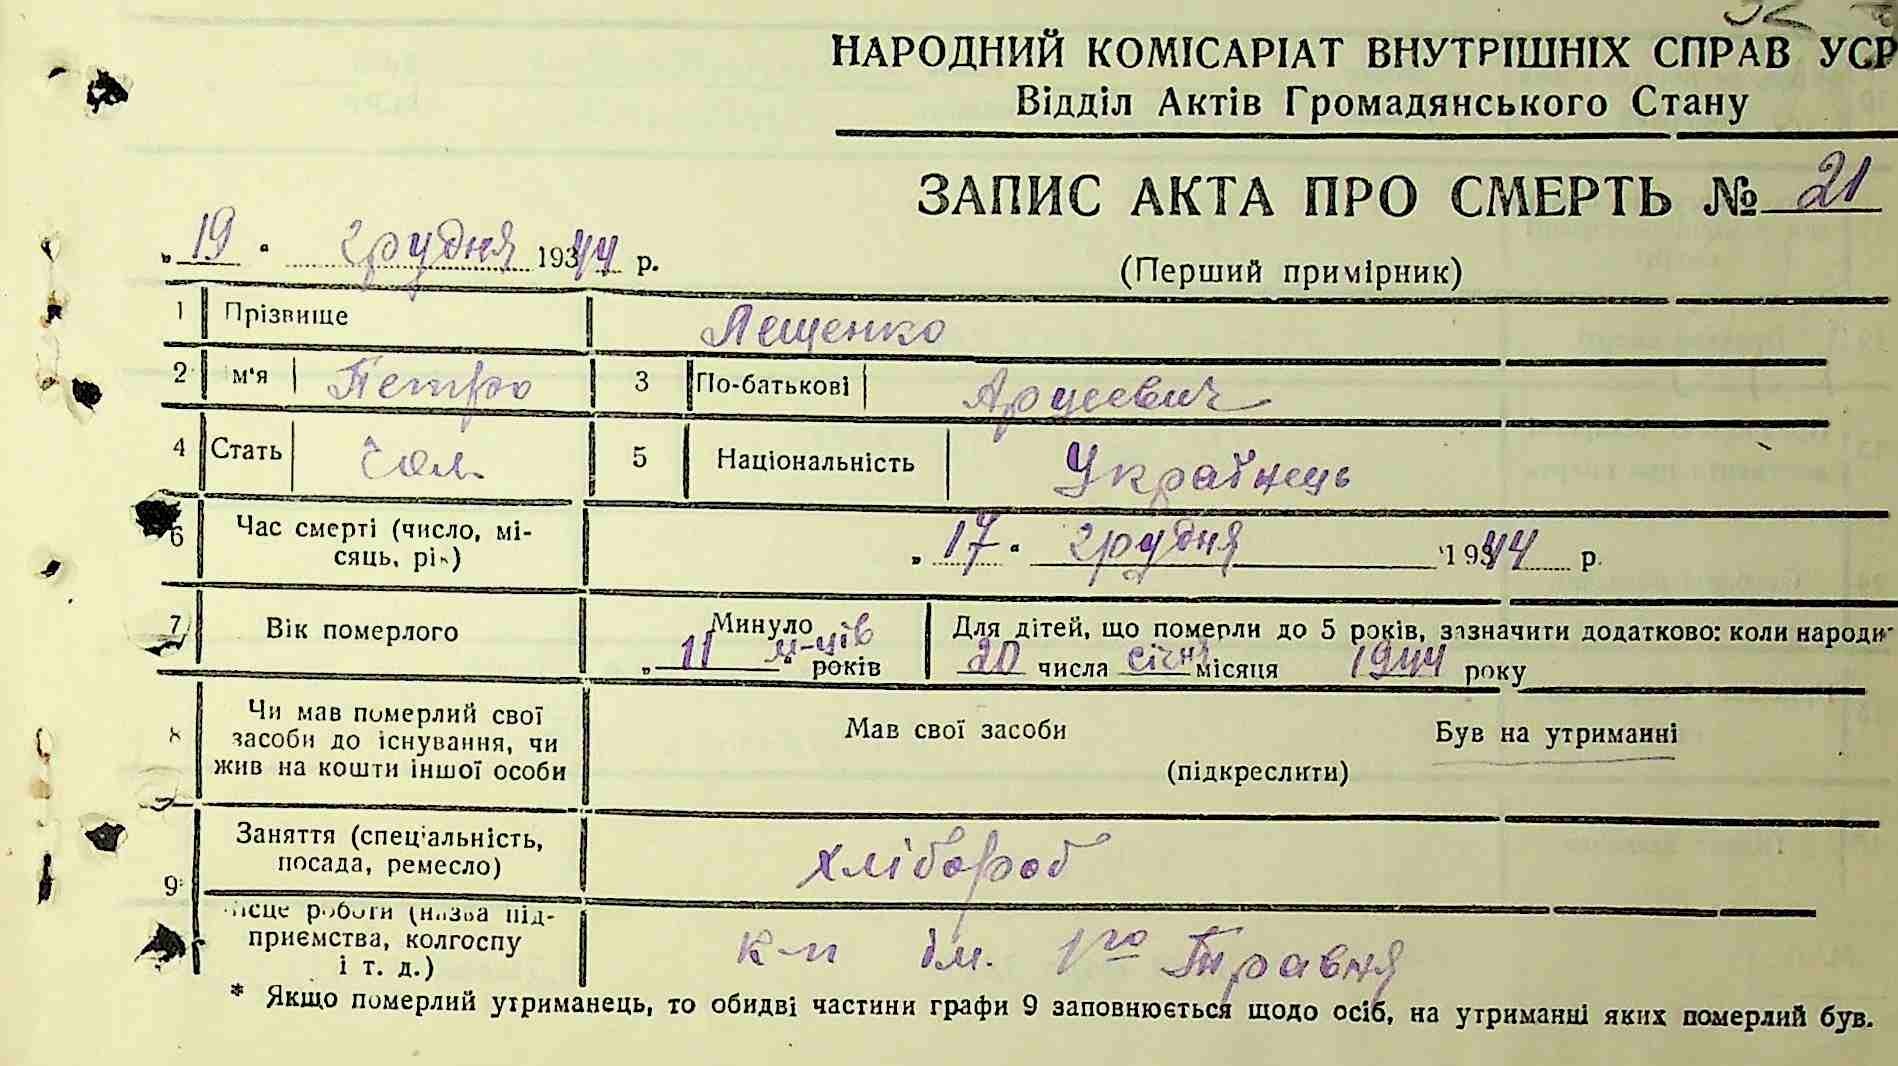 НАРОДНИЙ КОМІСАРІАТ ВНУТРІШНІХ СПРАВ УСР
Відділ Актів Громадянського Стану
ЗАПИС АКТА ПРО СМЕРТЬ № 21
„19“ грудня 1944 р.
(Перший примірник)
1 Прізвище Лещенко
2 м'я Петро 3 По-батькові
4 Стать чол. 5 Національність Українець
6 Час смерті (число, мі-
сяць, рік) „17“ грудня 1944 р.
7 Вік померлого Минуло „11“ м-ців років Для дітей, що померли до 5 років, зазначити додатково: коли народи-
20 числа січня місяця 1944 року
8 Чи мав померлий свої
засоби до існування, чи
жив на кошти іншої особи
Мав свої засоби Був на утриманні
(підкреслити)
9 Заняття (спеціальність,
посада, ремесло) хлібороб
місце роботи (назва під-
приємства, колгоспу
і т. д.) к-п ім. 1го Травня
* Якщо померлий утриманець, то обидві частини графи 9 заповнюється щодо осіб, на утриманні яких померлий був.